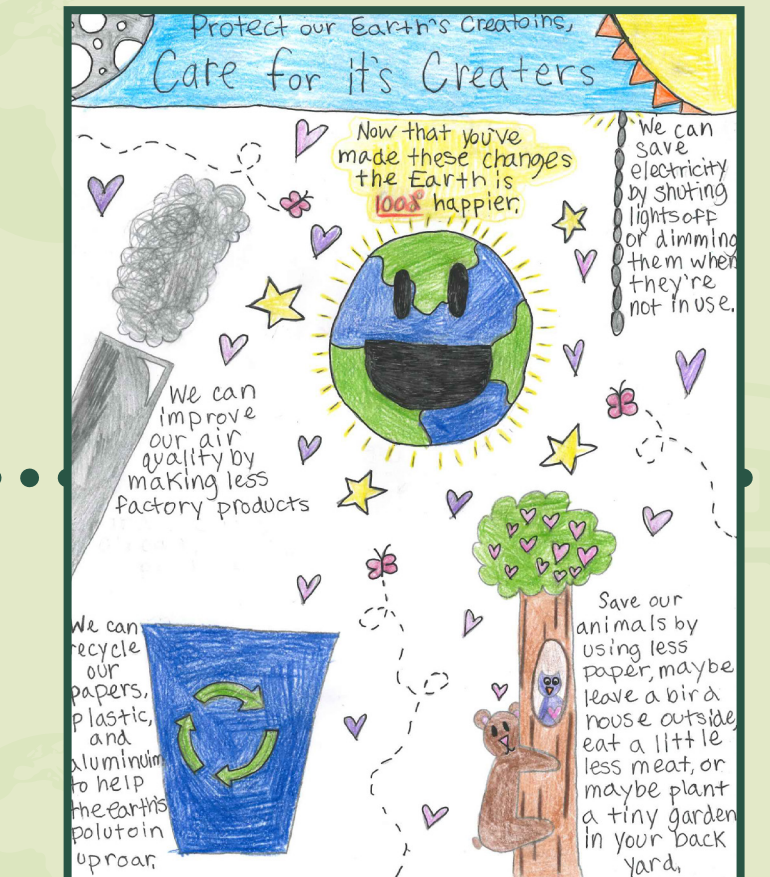 Protect our Earth's Creatoins,
Care for it's Creaters
Now that you've
made these changes
the Earth is
100% happier.
We can
save
electricity
by shuting
lights off
or dimming
them when
they're
not in use.
We can
improve
our air
quality by
making less
factory products
We can
recycle
our
papers,
plastic,
and
aluminuim
to help
the earth's
polutoin
uproar.
Save our
animals by
using less
paper, maybe
leave a bird
house outside,
eat a little
less meat, or
maybe plant
a tiny garden
in your back
yard.